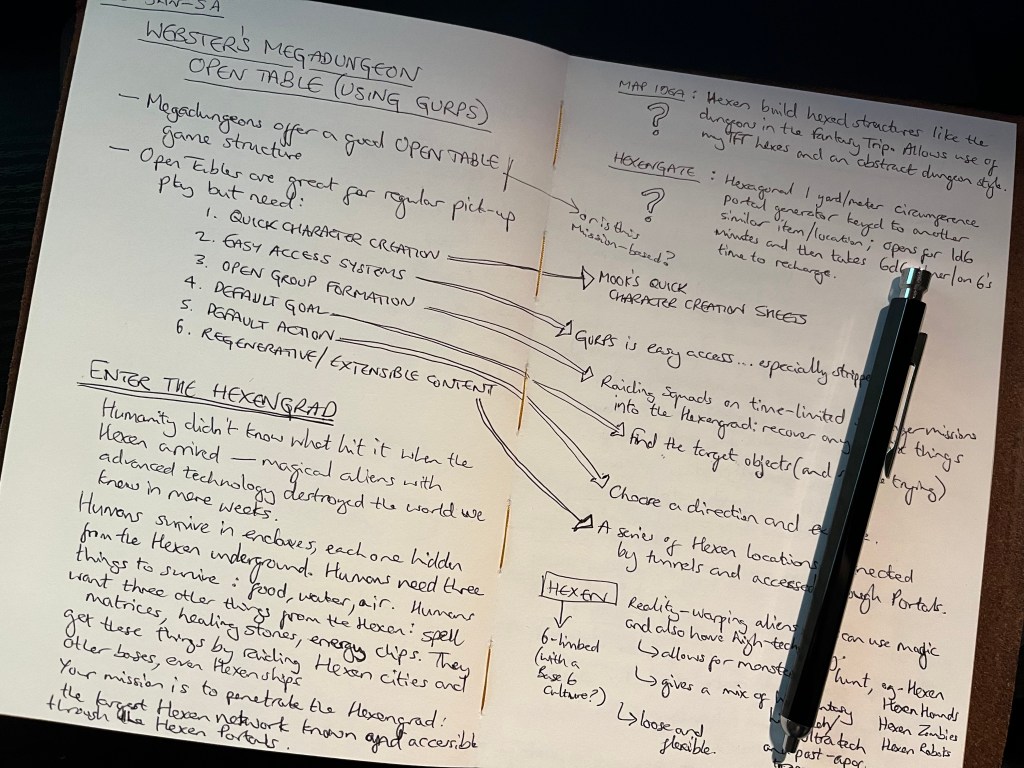 WEBSTER'S MEGADUNGEON
OPEN TABLE (USING GURPS)
— Megadungeons offer a good OPEN TABLE
game structure
— Open Tables are great for regular pick-up
play but need:
1. QUICK CHARACTER CREATION
2. EASY ACCESS SYSTEMS
3. OPEN GROUP FORMATION
4. DEFAULT GOAL
5. DEFAULT ACTION
6. REGENERATIVE/EXTENSIBLE CONTENT
ENTER THE HEXENGRAD
Humanity didn't know what hit it when the
Hexen arrived — magical aliens with
advanced technology destroyed the world we
knew in mere weeks.
Humans survive in enclaves, each one hidden
from the Hexen underground. Humans need three
things to survive: food, water, air. Humans
want three other things from the Hexen: spell
matrices, healing stones, energy chips. They
get these things by raiding Hexen cities and
other bases, even Hexenships
Your mission is to penetrate the Hexengrad:
the largest Hexen network known and accessible
through the Hexen Portals.
MAP IDEA: Hexen build hexed structures like the
? dungeon in the Fantasy Trip. Allows use of
my TFT hexes and an abstract dungeon style.
HEXENGATE: Hexagonal 1 yard/meter circumference
? portal generator keyed to another
similar item/location; opens for 1d6
minutes and then takes on 6's
time to recharge.
or is this
Mission-based?
MOOK'S QUICK
CHARACTER CREATION SHEETS
GURPS is easy access... especially
Raiding Squads on time-limited missions
into the Hexengrad: recover things
Find the target objects (and trying)
Choose a direction and
A series of Hexen locations
by tunnels and through Portals.
HEXEN
6-limbed
(with a
Base 6
Culture?)
Reality-warping aliens can use magic
and also have high-tech
allows for hunt, eg. Hexen
Hexen Hounds
gives a mix of
Hexen Zombies
ultratech Hexen Robots
loose and
flexible.
post-apoc.